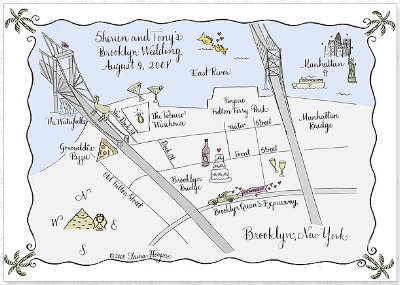 Sherien and Tony's
Brooklyn Wedding
August 9, 2008
East River
Manhattan
The Waterfalls
The Tobacco
Warehouse
Empire
Fulton Ferry Park
Manhattan
Bridge
Water Street
Grimaldi's
Pizza
Dock St
Front Street
Old Fulton Street
Brooklyn
Bridge
Brooklyn Queen's Expressway
N
W E
S
Brooklyn, New York
©2008